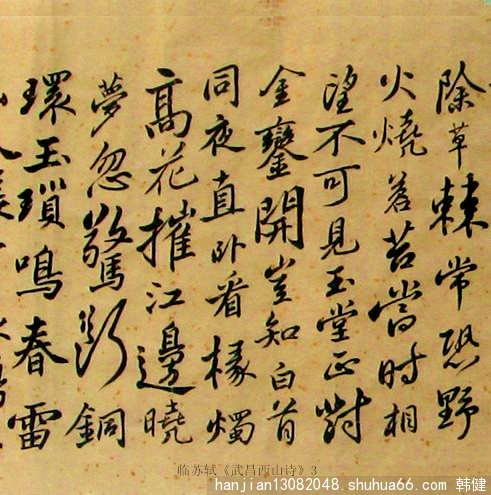 除草棘常恐野
火燒蒼苔當時相
望不可見玉堂正對
金鑾開豈知白首
同夜直卧看椽燭
高花摧江邊曉
夢忽驚斷銅
環玉瑣鳴春雷
临苏轼《武昌西山诗》3
hanjian13082048.shuhua66.com 韩健